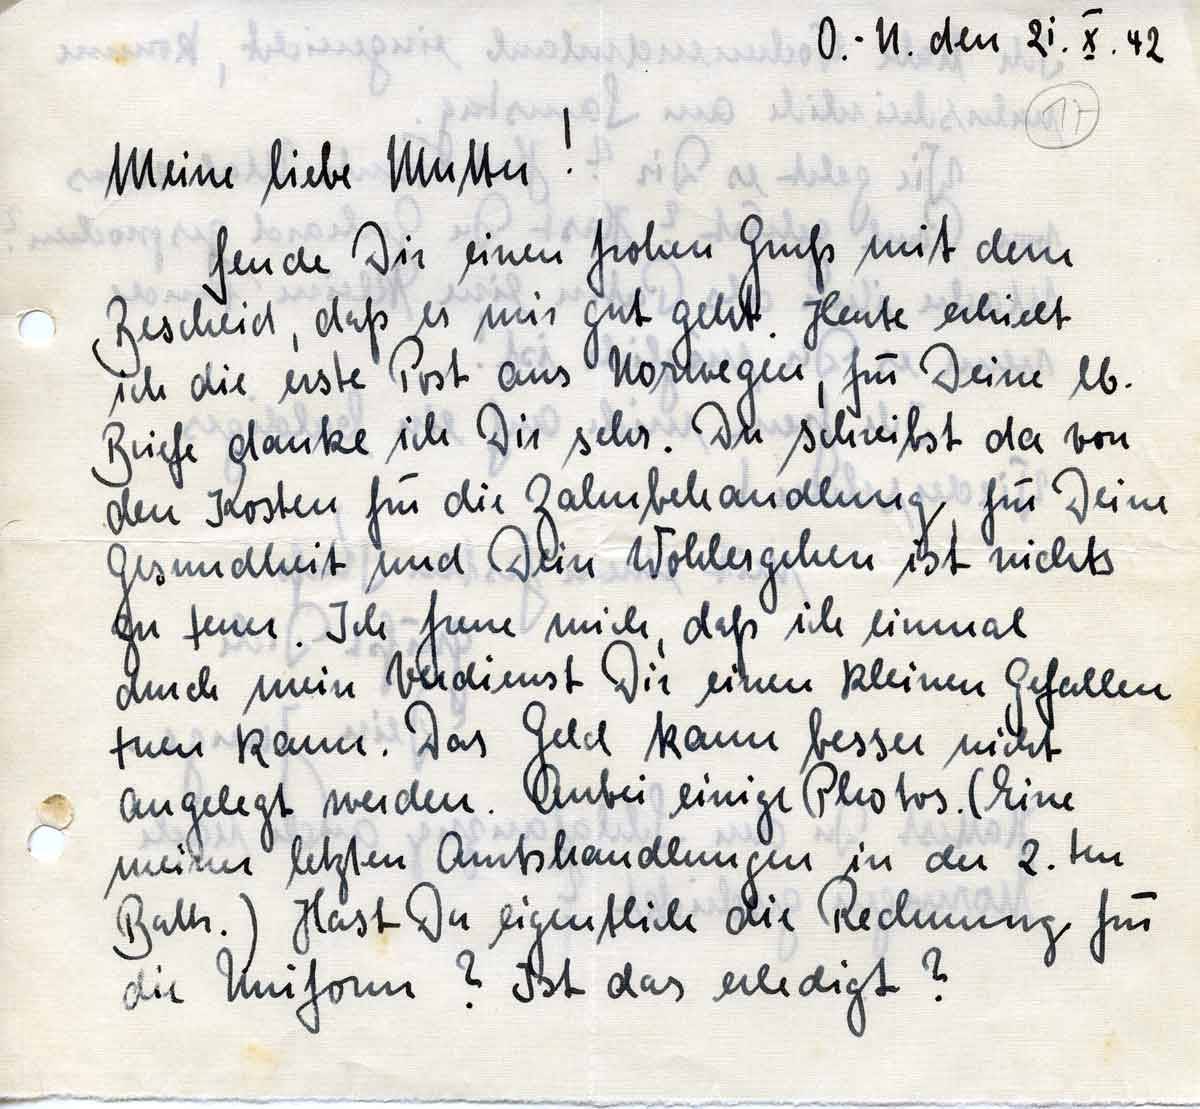 O.-N. den 21. X. 42
Meine liebe Mutter!
Sende Dir einen frohen Gruß mit dem
Bescheid, daß es mir gut geht. Heute erhielt
ich die erste Post aus Norwegen, für Deine lb.
Briefe danke ich Dir sehr. Du schreibst da von
den Kosten für die Zahnbehandlung, für Deine
Gesundheit und Dein Wohlergehen ist nichts
zu teuer. Ich freue mich, daß ich einmal
durch mein Verdienst Dir einen kleinen Gefallen
tuen kann. Das Geld kann besser nicht
angelegt werden. Anbei einige Photos. (Eine
meiner letzten Amtshandlungen in der 2.ten
Battr.) Hast Du eigentlich die Rechnung für
die Uniform? Ist das erledigt?